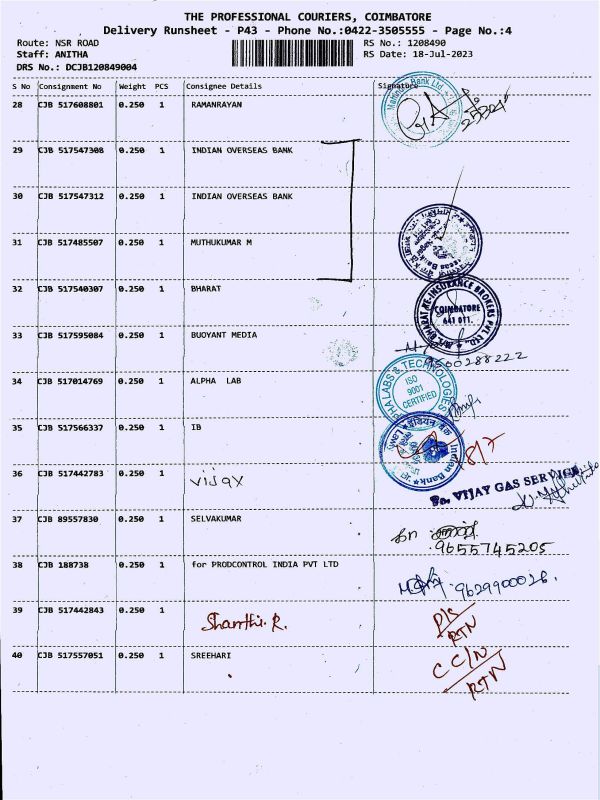 THE PROFESSIONAL COURIERS, COIMBATORE
Delivery Runsheet - P43 - Phone No.:0422-3505555 - Page No.:4
Route: NSR ROAD RS No.: 1208490
Staff: ANITHA RS Date: 18-Jul-2023
DRS No.: DCJB120849004
S No Consignment No Weight PCS Consignee Details Signature
28 CJB 517608801 0.250 1 RAMANRAYAN
29 CJB 517547308 0.250 1 INDIAN OVERSEAS BANK
30 CJB 517547312 0.250 1 INDIAN OVERSEAS BANK
31 CJB 517485507 0.250 1 MUTHUKUMAR M
32 CJB 517540307 0.250 1 BHARAT
BHARAT RE-INSURANCE BROKERS PVT LTD.,
COIMBATORE
641 011.
33 CJB 517595084 0.250 1 BUOYANT MEDIA
9500288222
34 CJB 517014769 0.250 1 ALPHA LAB
ALPHALABS & TECHNOLOGIES
ISO
9001
CERTIFIED
35 CJB 517566337 0.250 1 IB
Indian Bank
36 CJB 517442783 0.250 1 Vijay
VIJAY GAS SERVICE
37 CJB 89557830 0.250 1 SELVAKUMAR
9655745205
38 CJB 188738 0.250 1 for PRODCONTROL INDIA PVT LTD
9629900026
39 CJB 517442843 0.250 1 Shanthi. R.
RTN
40 CJB 517557051 0.250 1 SREEHARI
RTN